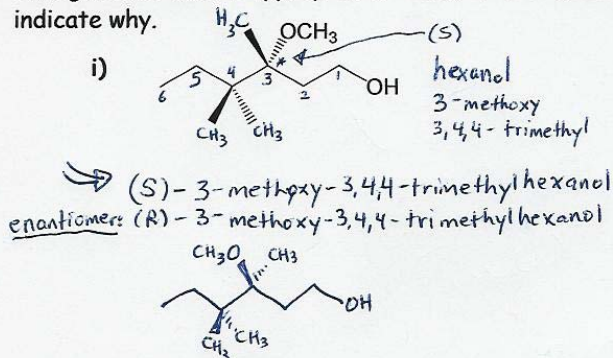 indicate why.
H₃C OCH₃ (S)
i)
6 5 4 3 * 2 1 OH
CH₃ CH₃
hexanol
3-methoxy
3,4,4-trimethyl
(S)-3-methoxy-3,4,4-trimethylhexanol
enantiomer: (R)-3-methoxy-3,4,4-trimethylhexanol
CH₃O CH₃
OH
CH₃ CH₃